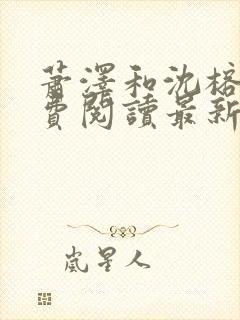 萧澤和沈榕
費閱讀最新
嵐星人